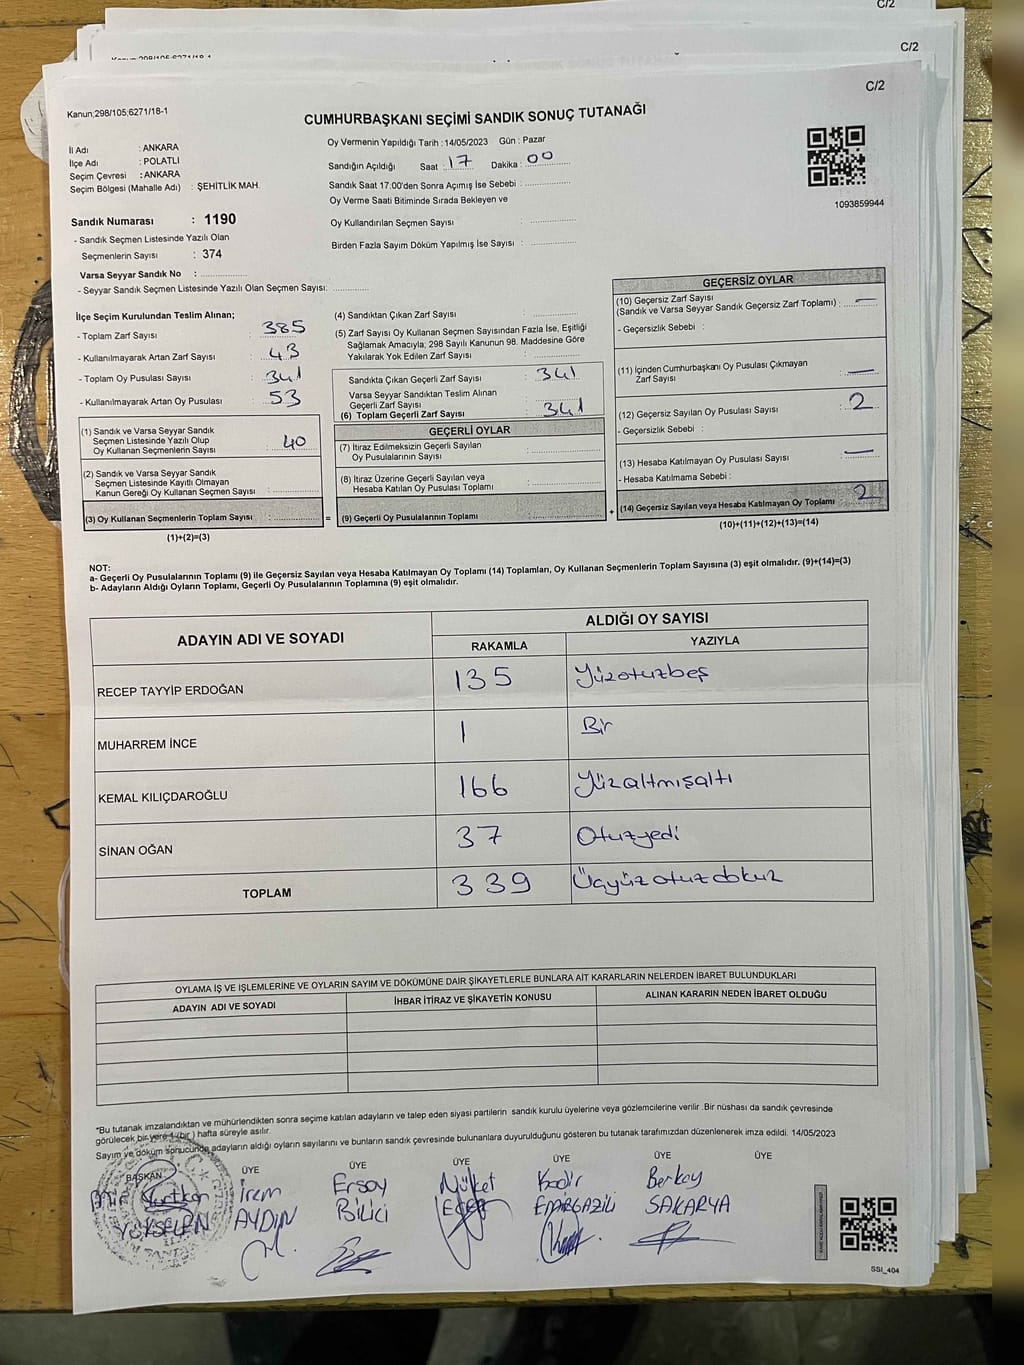 C/2
C/2
C/2
Kanun;298/105;6271/18-1
CUMHURBAŞKANI SEÇİMİ SANDIK SONUÇ TUTANAĞI
İl Adı : ANKARA
İlçe Adı : POLATLI
Seçim Çevresi : ANKARA
Seçim Bölgesi (Mahalle Adı) : ŞEHİTLİK MAH.
Oy Vermenin Yapıldığı Tarih : 14/05/2023 Gün : Pazar
Sandığın Açıldığı Saat : 17 Dakika : 00
Sandık Saat 17:00'den Sonra Açımış İse Sebebi :
Oy Verme Saati Bitiminde Sırada Bekleyen ve
Oy Kullandırılan Seçmen Sayısı :
Birden Fazla Sayım Döküm Yapılmış İse Sayısı :
1093859944
Sandık Numarası : 1190
- Sandık Seçmen Listesinde Yazılı Olan
Seçmenlerin Sayısı : 374
Varsa Seyyar Sandık No :
- Seyyar Sandık Seçmen Listesinde Yazılı Olan Seçmen Sayısı:
İlçe Seçim Kurulundan Teslim Alınan;
- Toplam Zarf Sayısı : 385
- Kullanılmayarak Artan Zarf Sayısı : 43
- Toplam Oy Pusulası Sayısı : 341
- Kullanılmayarak Artan Oy Pusulası : 53
(1) Sandık ve Varsa Seyyar Sandık
Seçmen Listesinde Yazılı Olup
Oy Kullanan Seçmenlerin Sayısı : 40
(2) Sandık ve Varsa Seyyar Sandık
Seçmen Listesinde Kayıtlı Olmayan
Kanun Gereği Oy Kullanan Seçmen Sayısı :
(3) Oy Kullanan Seçmenlerin Toplam Sayısı :
(1)+(2)=(3)
=
(4) Sandıktan Çıkan Zarf Sayısı :
(5) Zarf Sayısı Oy Kullanan Seçmen Sayısından Fazla İse, Eşitliği
Sağlamak Amacıyla; 298 Sayılı Kanunun 98. Maddesine Göre
Yakılarak Yok Edilen Zarf Sayısı :
Sandıkta Çıkan Geçerli Zarf Sayısı : 341
Varsa Seyyar Sandıktan Teslim Alınan
Geçerli Zarf Sayısı :
(6) Toplam Geçerli Zarf Sayısı : 341
GEÇERLİ OYLAR
(7) İtiraz Edilmeksizin Geçerli Sayılan
Oy Pusulalarının Sayısı :
(8) İtiraz Üzerine Geçerli Sayılan veya
Hesaba Katılan Oy Pusulası Toplamı :
(9) Geçerli Oy Pusulalarının Toplamı :
+
GEÇERSİZ OYLAR
(10) Geçersiz Zarf Sayısı
(Sandık ve Varsa Seyyar Sandık Geçersiz Zarf Toplamı) : —
- Geçersizlik Sebebi :
(11) İçinden Cumhurbaşkanı Oy Pusulası Çıkmayan
Zarf Sayısı : —
(12) Geçersiz Sayılan Oy Pusulası Sayısı : 2
- Geçersizlik Sebebi :
(13) Hesaba Katılmayan Oy Pusulası Sayısı : —
- Hesaba Katılmama Sebebi :
(14) Geçersiz Sayılan veya Hesaba Katılmayan Oy Toplamı : 2
(10)+(11)+(12)+(13)=(14)
NOT:
a- Geçerli Oy Pusulalarının Toplamı (9) ile Geçersiz Sayılan veya Hesaba Katılmayan Oy Toplamı (14) Toplamları, Oy Kullanan Seçmenlerin Toplam Sayısına (3) eşit olmalıdır. (9)+(14)=(3)
b- Adayların Aldığı Oyların Toplamı, Geçerli Oy Pusulalarının Toplamına (9) eşit olmalıdır.
ADAYIN ADI VE SOYADI
ALDIĞI OY SAYISI
RAKAMLA YAZIYLA
RECEP TAYYİP ERDOĞAN 135 Yüzotuzbeş
MUHARREM İNCE 1 Bir
KEMAL KILIÇDAROĞLU 166 Yüzaltmışaltı
SİNAN OĞAN 37 Otuzyedi
TOPLAM 339 Üçyüzotuzdokuz
OYLAMA İŞ VE İŞLEMLERİNE VE OYLARIN SAYIM VE DÖKÜMÜNE DAİR ŞİKAYETLERLE BUNLARA AİT KARARLARIN NELERDEN İBARET BULUNDUKLARI
ADAYIN ADI VE SOYADI İHBAR İTİRAZ VE ŞİKAYETİN KONUSU ALINAN KARARIN NEDEN İBARET OLDUĞU
*Bu tutanak imzalandıktan ve mühürlendikten sonra seçime katılan adayların ve talep eden siyasi partilerin sandık kurulu üyelerine veya gözlemcilerine verilir .Bir nüshası da sandık çevresinde
görülecek bir yere 1 (bir ) hafta süreyle asılır.
Sayım ve döküm sonucunda adayların aldığı oyların sayılarını ve bunların sandık çevresinde bulunanlara duyurulduğunu gösteren bu tutanak tarafımızdan düzenlenerek imza edildi. 14/05/2023
BAŞKAN ÜYE ÜYE ÜYE ÜYE ÜYE ÜYE
İrem Ersoy Nülket Kadir Berkay
YÜKSELEN AYDIN BİLİCİ EMİRGAZİLİ SAKARYA
SSI_404